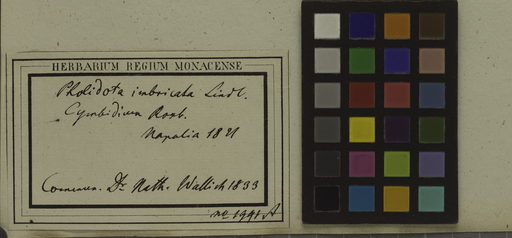 HERBARIUM REGIUM MONACENSE
Pholidota imbricata Lindl.
Cymbidium Roxb.
Napalia 1821
Commun. Dr. Nath. Wallich 1833
no 1991 A